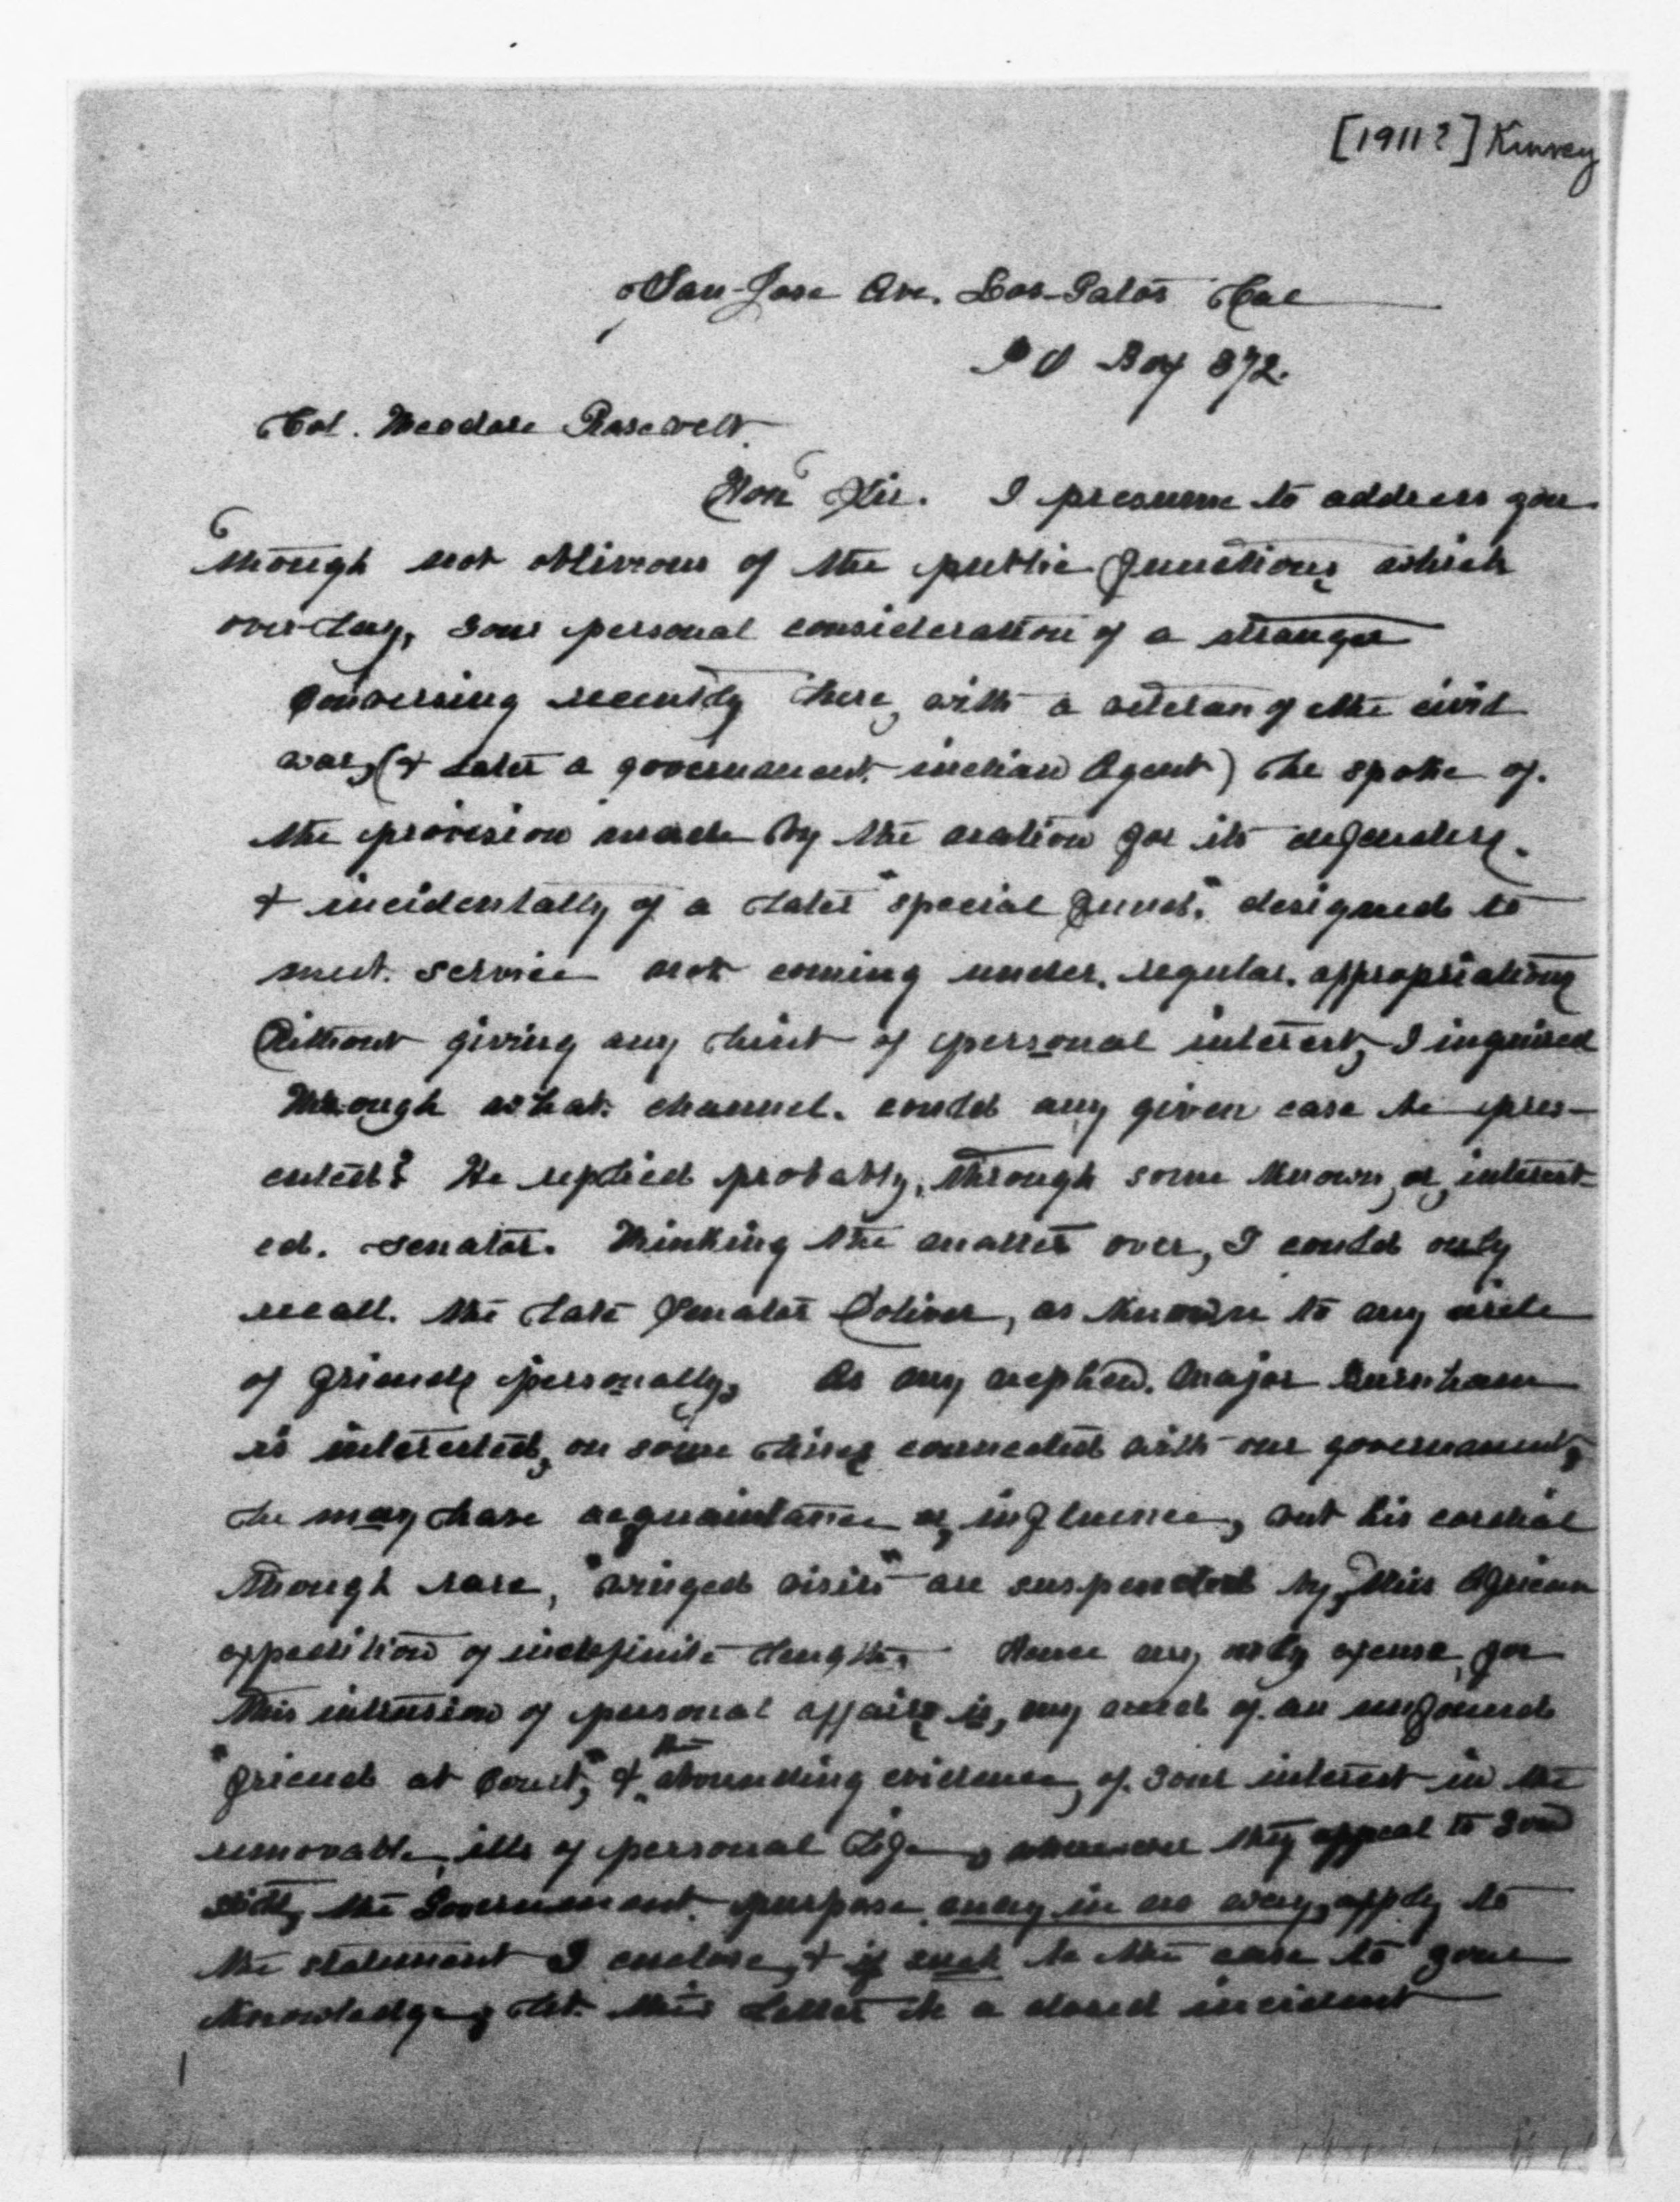 [1911?] Kinsey
San-Jose Ave. Los-Gatos Cal
P O Box 372.
Col. Theodore Roosevelt.
Hon Sir. I presume to address you
though not oblivious of the public functions which
overlay, your personal consideration of a stranger
Conversing recently here, with a veteran of the civil
war, (& later a government indian Agent) he spoke of
the provision made by the nation for its defenders.
& incidentally of a later "special fund," designed to
meet service not coming under regular appropriations
Without giving any hint of personal interest, I inquired
through what channel could any given case be pres-
ented? He replied probably, through some known, or, interest-
ed. senator. Thinking the matter over, I could only
recall. the late Senator Doliver, as known to my circle
of friends personally, As my nephew. Major Burnham
is interested, on some lines connected with our government,
he may have acquaintance or, influence, but his cordial
though rare, "winged visits" are suspended by, this African
expedition of indefinite length. Hence my only excuse, for
this intrusion of personal affairs is, my need of an unfound
"friend at court", & the abounding evidence, of your interest in the
removable, ills of personal life, whenever they appeal to you
the Government purpose may in no way, apply to
the statement I enclose, & if such be the case to your
knowledge, let this letter be a closed incident